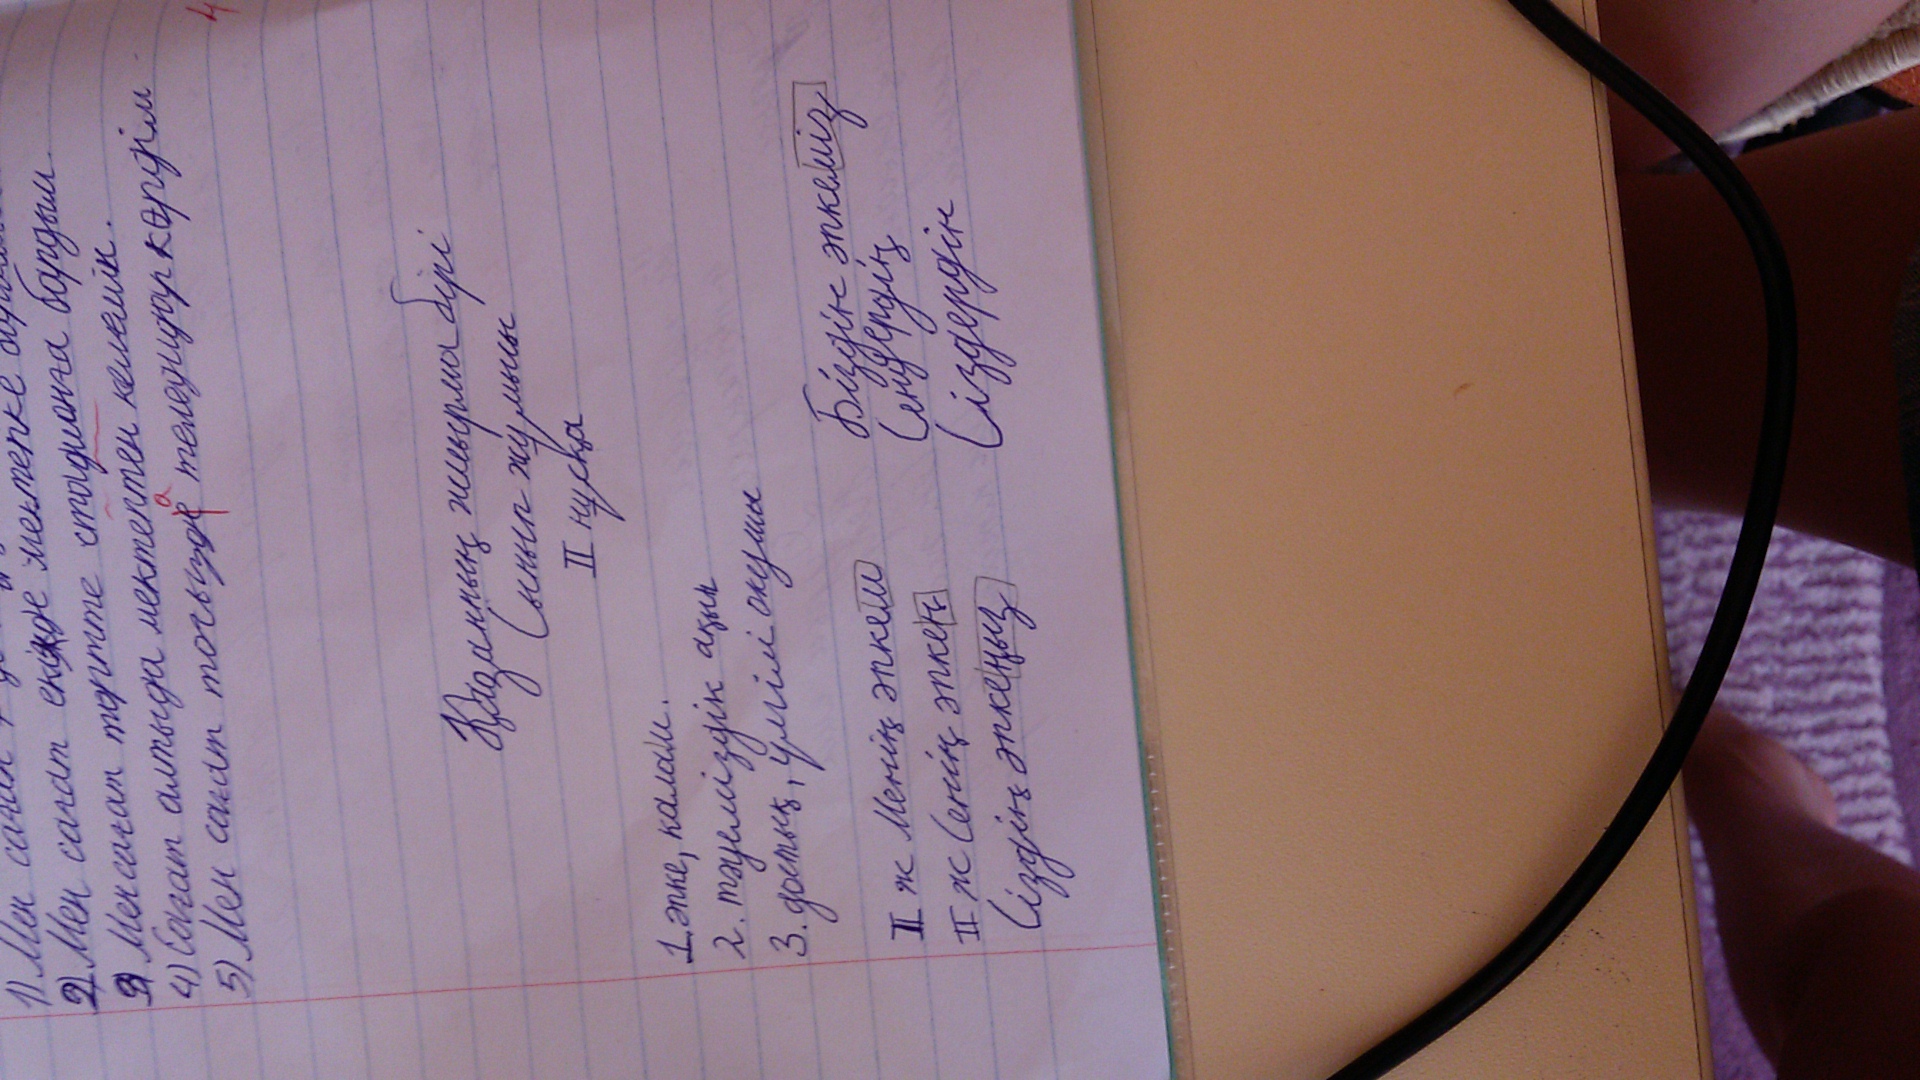 1) Мен сағат
2) Мен сағат екіде мектепке бардым
3) Мен сағат төртте стадионға бардым
4) Сағат алтыда мектептен келемін.
5) Мен сағат тоғызда теледидр көрдім
4
Қазанның жиырма бірі
Сынып жұмысы
II нұсқа
1. әпке, қалам.
2. тәуеліздік ақын
3. достық, үлгілі оқушы
II ж Менің әпкем Біздін әпкеміз
II ж Сенің әпкең Сендердің
Сіздің әпкеңыз Сіздердін